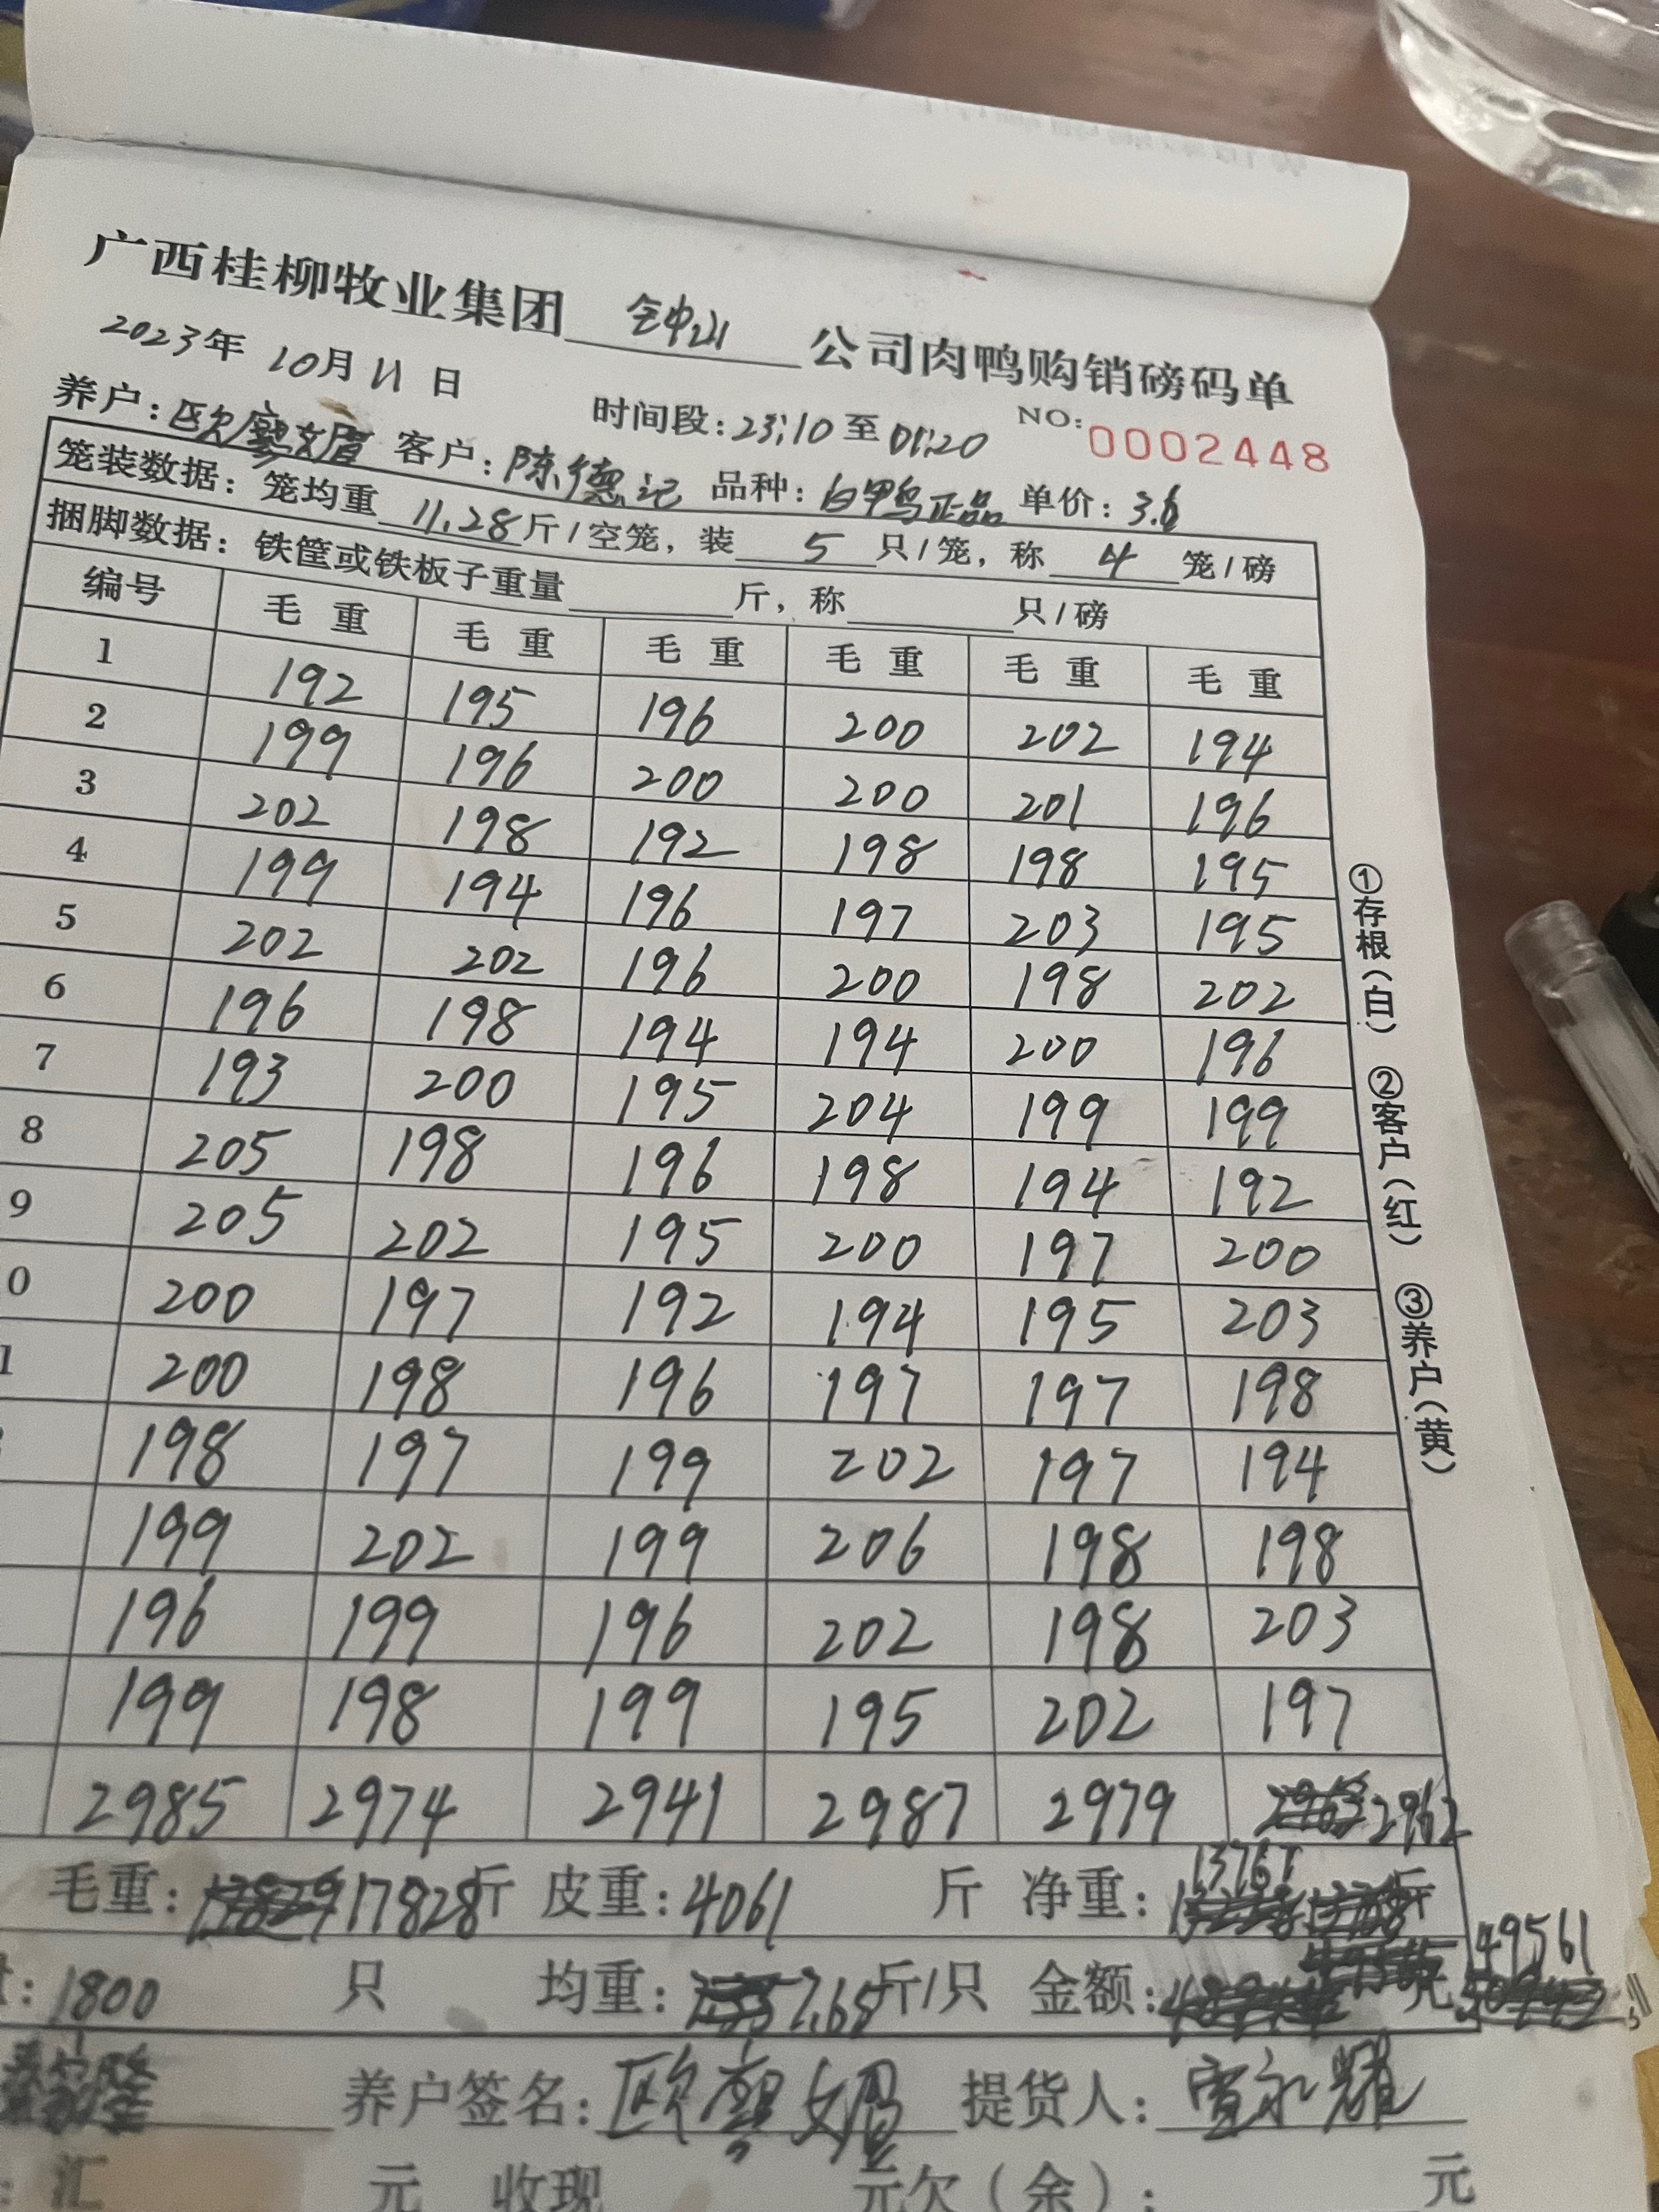 广西桂柳牧业集团 钟山 公司肉鸭购销磅码单
2023年 10月 11 日 时间段:23:10 至 01:20 NO: 0002448
养户:欧廖文眉 客户:陈德记 品种:白甲鸭正品 单价:3.6
笼装数据:笼均重 11.28 斤/空笼,装 5 只/笼,称 4 笼/磅
捆脚数据:铁筐或铁板子重量 斤,称 只/磅
编号 毛重 毛重 毛重 毛重 毛重 毛重
1 192 195 196 200 202 194
2 199 196 200 200 201 196
3 202 198 192 198 198 195
4 199 194 196 197 203 195
5 202 202 196 200 198 202
6 196 198 194 194 200 196
7 193 200 195 204 199 199
8 205 198 196 198 194 192
9 205 202 195 200 197 200
0 200 197 192 194 195 203
1 200 198 196 197 197 198
198 197 199 202 197 194
199 202 199 206 198 198
196 199 196 202 198 203
199 198 199 195 202 197
2985 2974 2941 2987 2979 2962
毛重:17828斤 皮重:4061 斤 净重:13767 斤
1800 只 均重:7.65斤/只 金额: 元 49561
养户签名:欧廖文眉 提货人:
汇 元 收现 元欠(余): 元
①存根(白) ②客户(红) ③养户(黄)